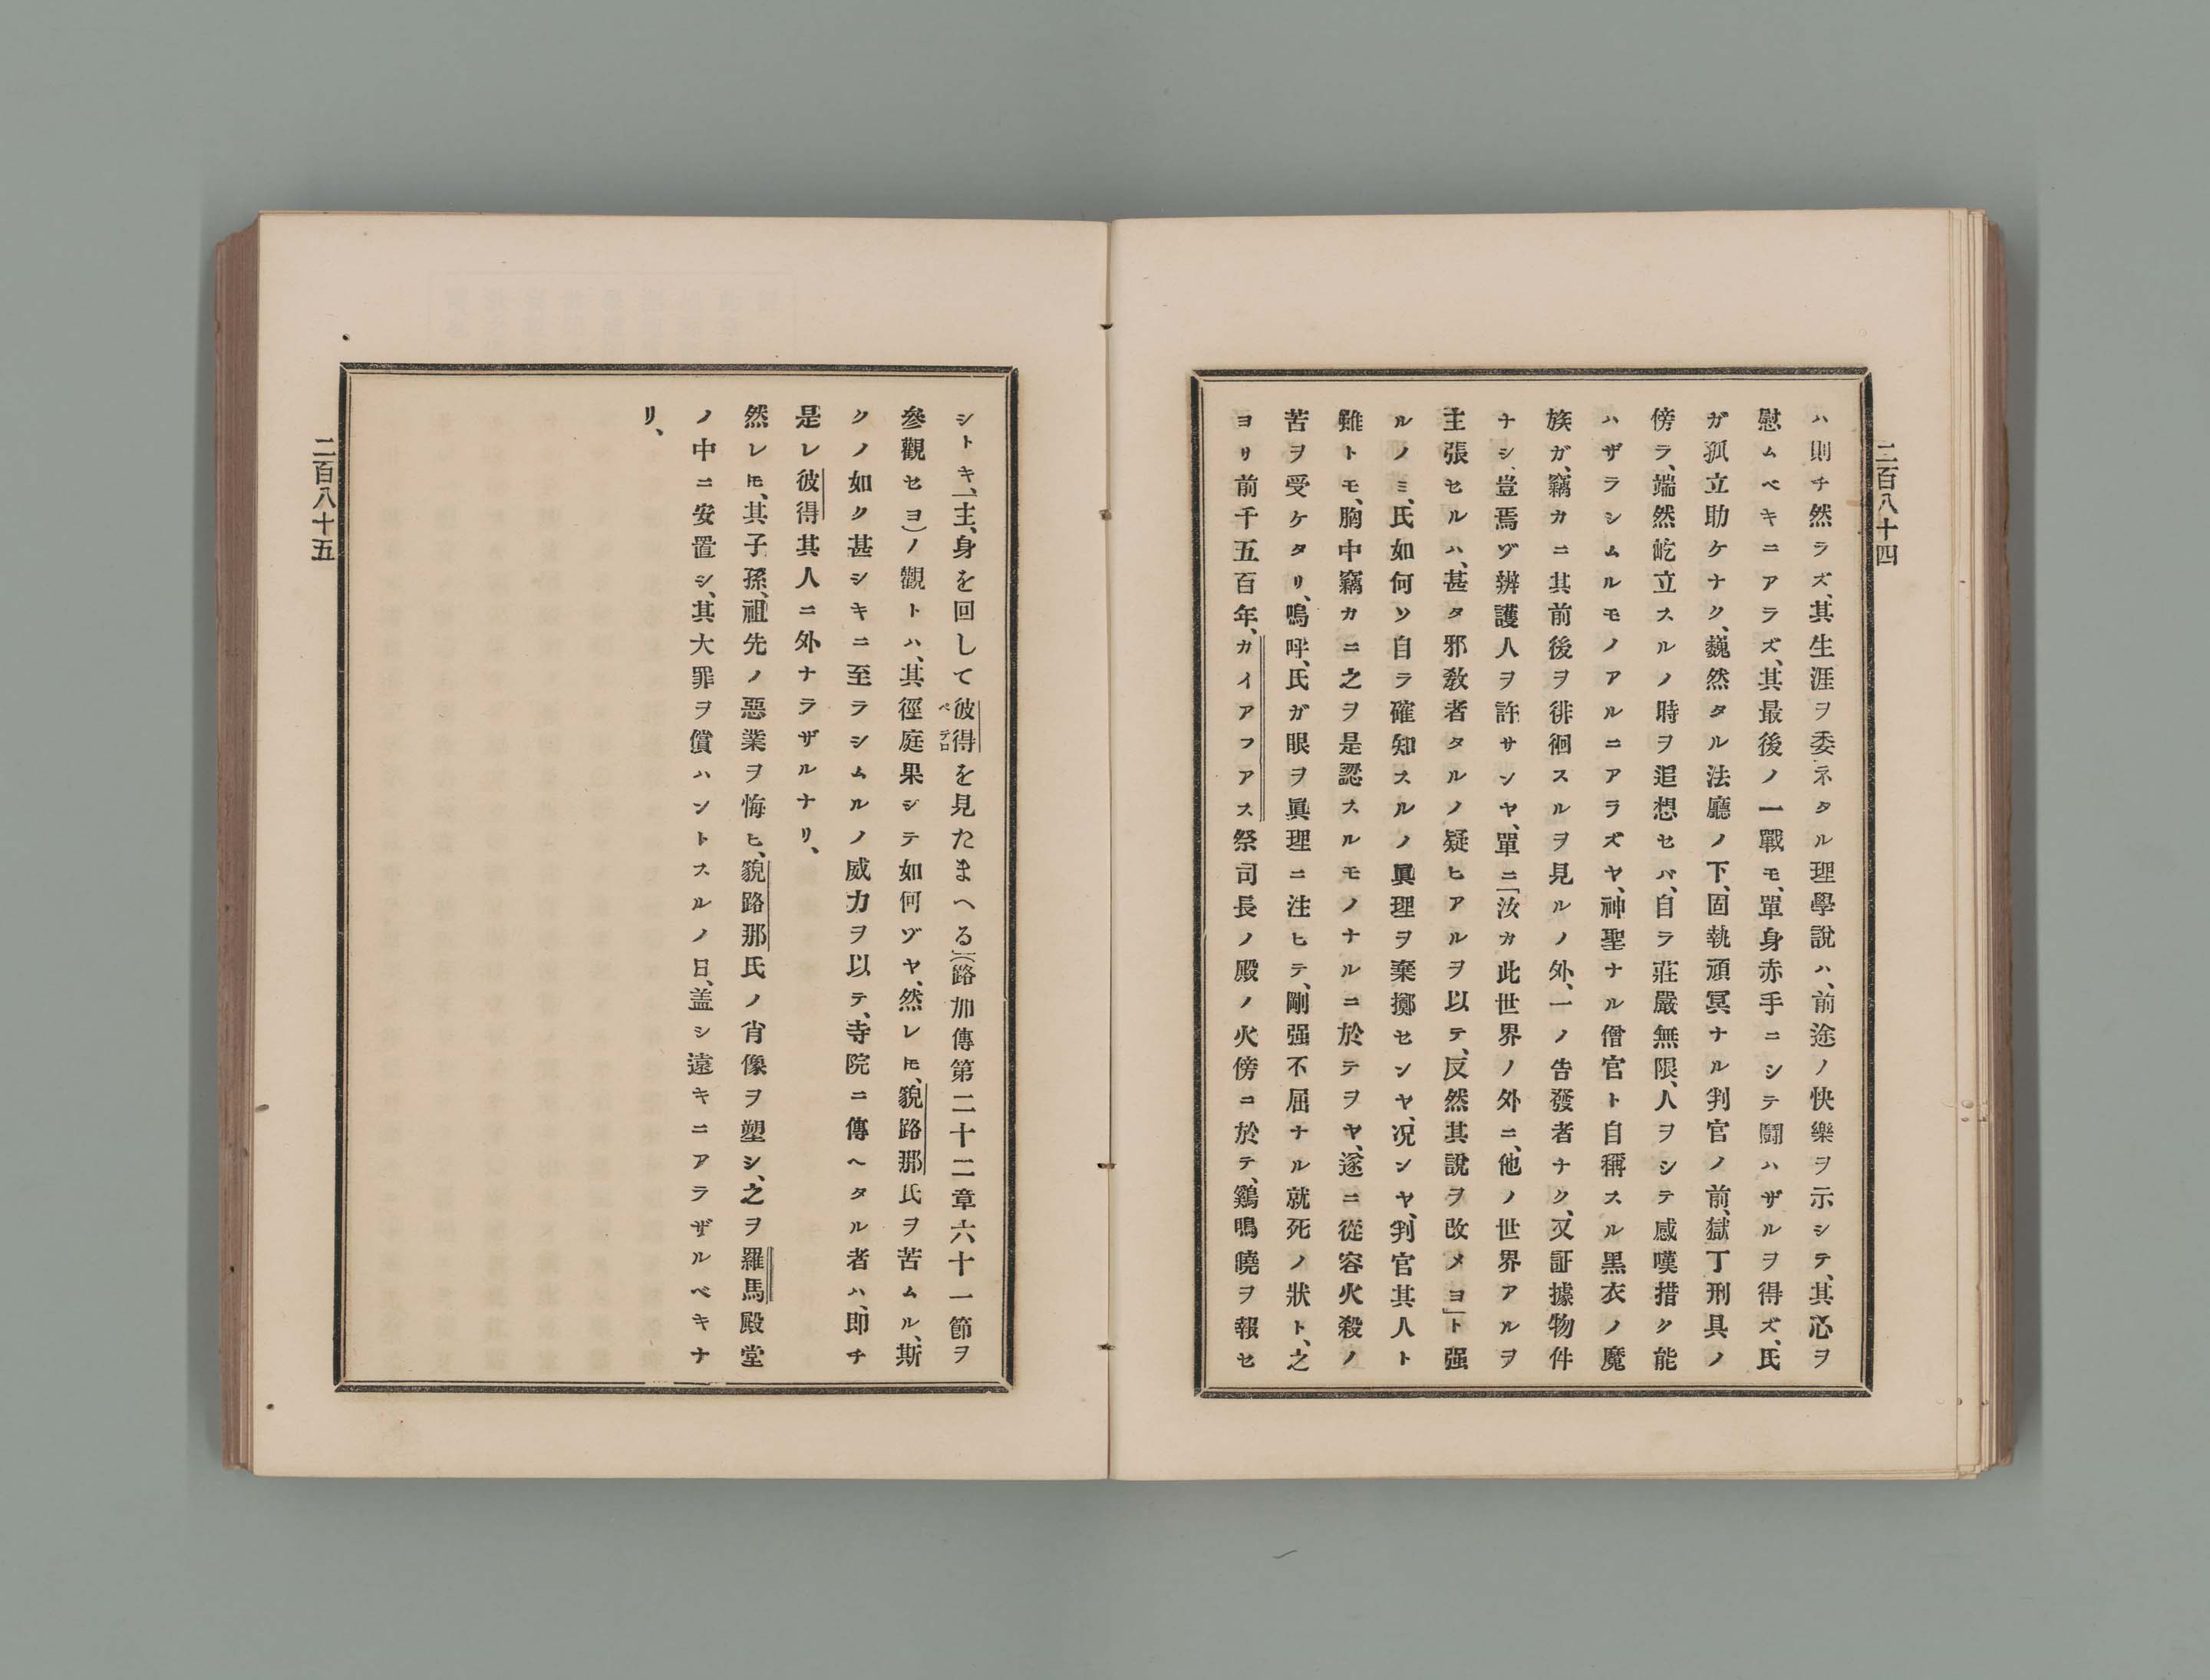 二百八十四
ハ則チ然ラズ、其生涯ヲ委ネタル理學說ハ、前途ノ快樂ヲ示シテ、其心ヲ
慰ムベキニアラズ、其最後ノ一戰モ、單身赤手ニシテ鬪ハザルヲ得ズ、氏
ガ孤立助ケナク、巍然タル法廳ノ下、固執頑冥ナル判官ノ前、獄丁刑具ノ
傍ラ、端然屹立スルノ時ヲ追想セバ、自ラ莊嚴無限、人ヲシテ感嘆措ク能
ハザラシムルモノアルニアラズヤ、神聖ナル僧官ト自稱スル黑衣ノ魔
族ガ、竊カニ其前後ヲ徘徊スルヲ見ルノ外、一ノ告發者ナク、又証據物件
ナシ、豈焉ゾ辨護人ヲ許サンヤ、單ニ「汝カ此世界ノ外ニ、他ノ世界アルヲ
主張セルハ、甚タ邪敎者タルノ疑ヒアルヲ以テ、反然其說ヲ改メヨ」ト强
ルノミ、氏如何ソ自ラ確知スルノ眞理ヲ棄擲センヤ、况ンヤ、判官其人ト
雖トモ、胸中竊カニ之ヲ是認スルモノナルニ於テヲヤ、遂ニ從容火殺ノ
苦ヲ受ケタリ、嗚呼、氏ガ眼ヲ眞理ニ注ヒテ、剛强不屈ナル就死ノ狀ト、之
ヨリ前千五百年、カイアフアス祭司長ノ殿ノ火傍ニ於テ、鷄鳴曉ヲ報セ
シトキ、「主、身を回して彼得を見たまへる」（路加傳第二十二章六十一節ヲ
ペテロ
參觀セヨ）ノ觀トハ、其徑庭果シテ如何ゾヤ、然レ𪜈、貌路那氏ヲ苦ムル、斯
クノ如ク甚シキニ至ラシムルノ威力ヲ以テ、寺院ニ傳ヘタル者ハ、即チ
是レ彼得其人ニ外ナラザルナリ、
然レ𪜈、其子孫、祖先ノ惡業ヲ悔ヒ、貌路那氏ノ肖像ヲ塑シ、之ヲ羅馬殿堂
ノ中ニ安置シ、其大罪ヲ償ハントスルノ日、盖シ遠キニアラザルベキナ
リ、
二百八十五